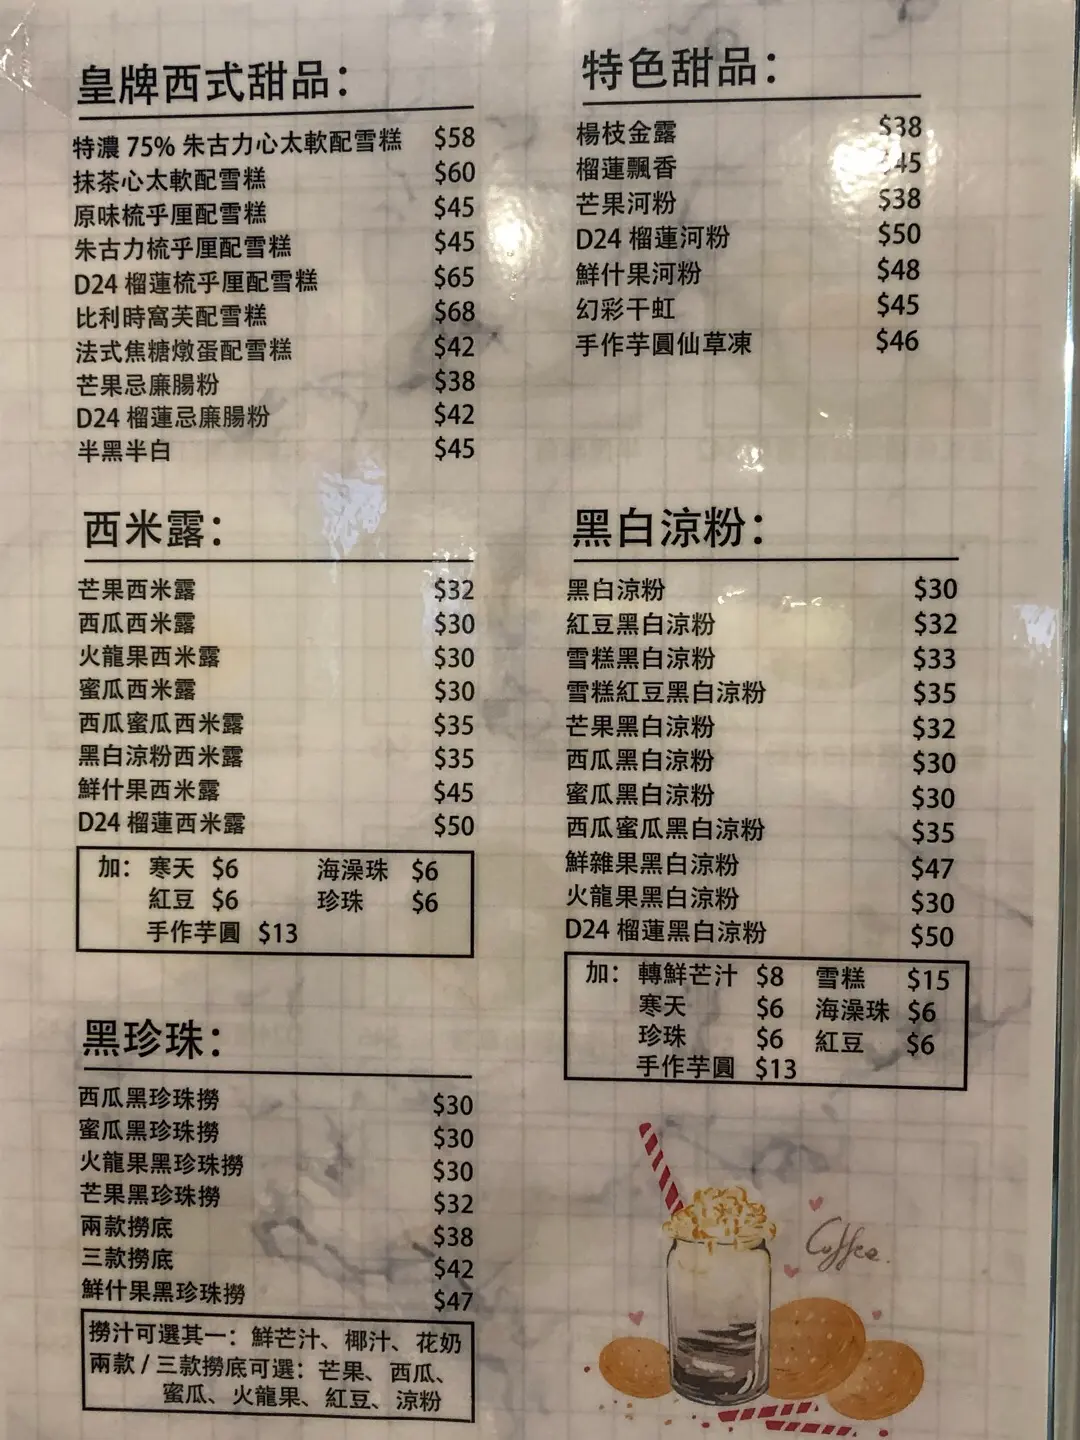 皇牌西式甜品：
特濃 75% 朱古力心太軟配雪糕 $58
抹茶心太軟配雪糕 $60
原味梳乎厘配雪糕 $45
朱古力梳乎厘配雪糕 $45
D24 榴蓮梳乎厘配雪糕 $65
比利時窩芙配雪糕 $68
法式焦糖燉蛋配雪糕 $42
芒果忌廉腸粉 $38
D24 榴蓮忌廉腸粉 $42
半黑半白 $45
特色甜品：
楊枝金露 $38
榴蓮飄香 $45
芒果河粉 $38
D24 榴蓮河粉 $50
鮮什果河粉 $48
幻彩干虹 $45
手作芋圓仙草凍 $46
西米露：
芒果西米露 $32
西瓜西米露 $30
火龍果西米露 $30
蜜瓜西米露 $30
西瓜蜜瓜西米露 $35
黑白涼粉西米露 $35
鮮什果西米露 $45
D24 榴蓮西米露 $50
加： 寒天 $6 海澡珠 $6
紅豆 $6 珍珠 $6
手作芋圓 $13
黑白涼粉：
黑白涼粉 $30
紅豆黑白涼粉 $32
雪糕黑白涼粉 $33
雪糕紅豆黑白涼粉 $35
芒果黑白涼粉 $32
西瓜黑白涼粉 $30
蜜瓜黑白涼粉 $30
西瓜蜜瓜黑白涼粉 $35
鮮雜果黑白涼粉 $47
火龍果黑白涼粉 $30
D24 榴蓮黑白涼粉 $50
加： 轉鮮芒汁 $8 雪糕 $15
寒天 $6 海澡珠 $6
珍珠 $6 紅豆 $6
手作芋圓 $13
黑珍珠：
西瓜黑珍珠撈 $30
蜜瓜黑珍珠撈 $30
火龍果黑珍珠撈 $30
芒果黑珍珠撈 $32
兩款撈底 $38
三款撈底 $42
鮮什果黑珍珠撈 $47
撈汁可選其一：鮮芒汁、椰汁、花奶
兩款 / 三款撈底可選：芒果、西瓜、
蜜瓜、火龍果、紅豆、涼粉
Coffee.